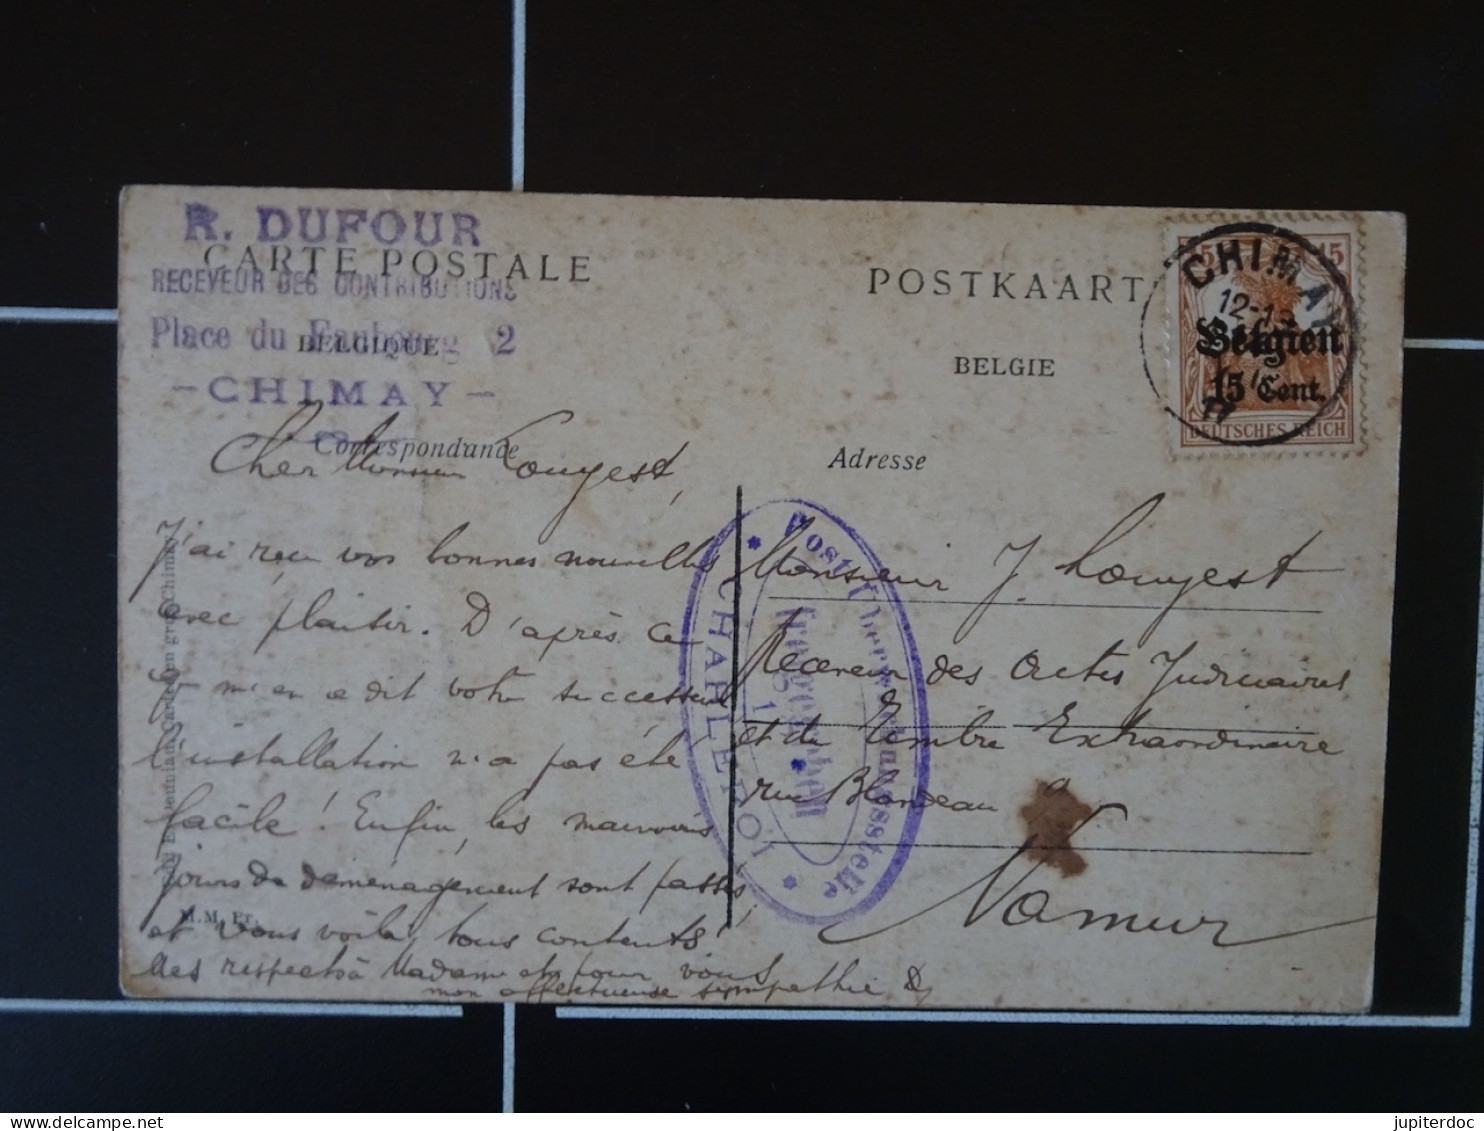 R. DUFOUR
RECEVEUR DES CONTRIBUTIONS
Place du Faubourg 2
- CHIMAY -
CARTE POSTALE
BELGIQUE
Correspondance
POSTKAART
BELGIE
Adresse
CHIMAY
12-13
17
15 15
Belgien
15 Cent.
DEUTSCHES REICH
Cher Monsieur Louyest,
J'ai reçu vos bonnes nouvelles
avec plaisir. D'après ce
que m'en a dit votre successeur
l'installation n'a pas été
facile! Enfin, les mauvais
jours de déménagement sont passés,
et vous voilà tous contents!
Mes respects à Madame et pour vous
mon affectueuse sympathie D
Monsieur J. Louyest
Receveur des Actes Judiciaires
et du Timbre Extraordinaire
rue Blondeau 9
Namur
Postüberwachungsstelle
freigegeben
CHARLEROI
M.M. Pr.
jupiterdoc